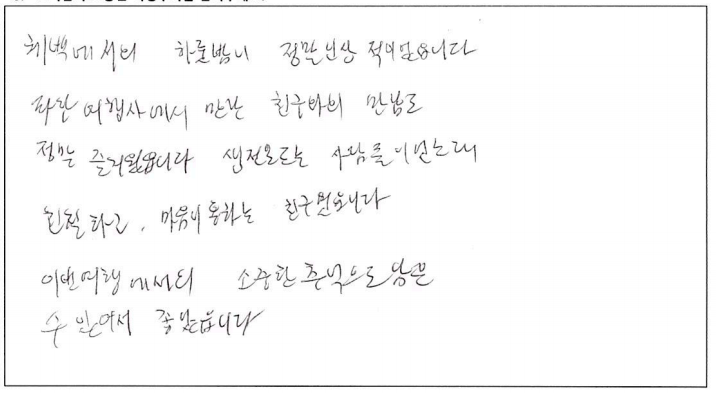 체벽에서의 하룻밤이 정말 인상 적이었습니다
여행사에서 만난 친구와의 만남도
정말 즐거웠습니다 생전모르는 사람들이었는데
친절하고, 마음이 통하는 친구였습니다
이번여행에서의 소중한 추억으로 남을
수 있어서 좋았습니다